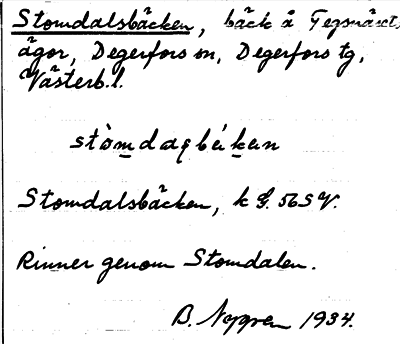 Stomdalsbäcken, bäck å Tegsnäset,
ägor, Degerfors sn, Degerfors tg,
Västerb.l.
stòmdasbékan
Stomdalsbäcken, k G. 56 SV.
Rinner genom Stomdalen.
B. Nygren 1934.